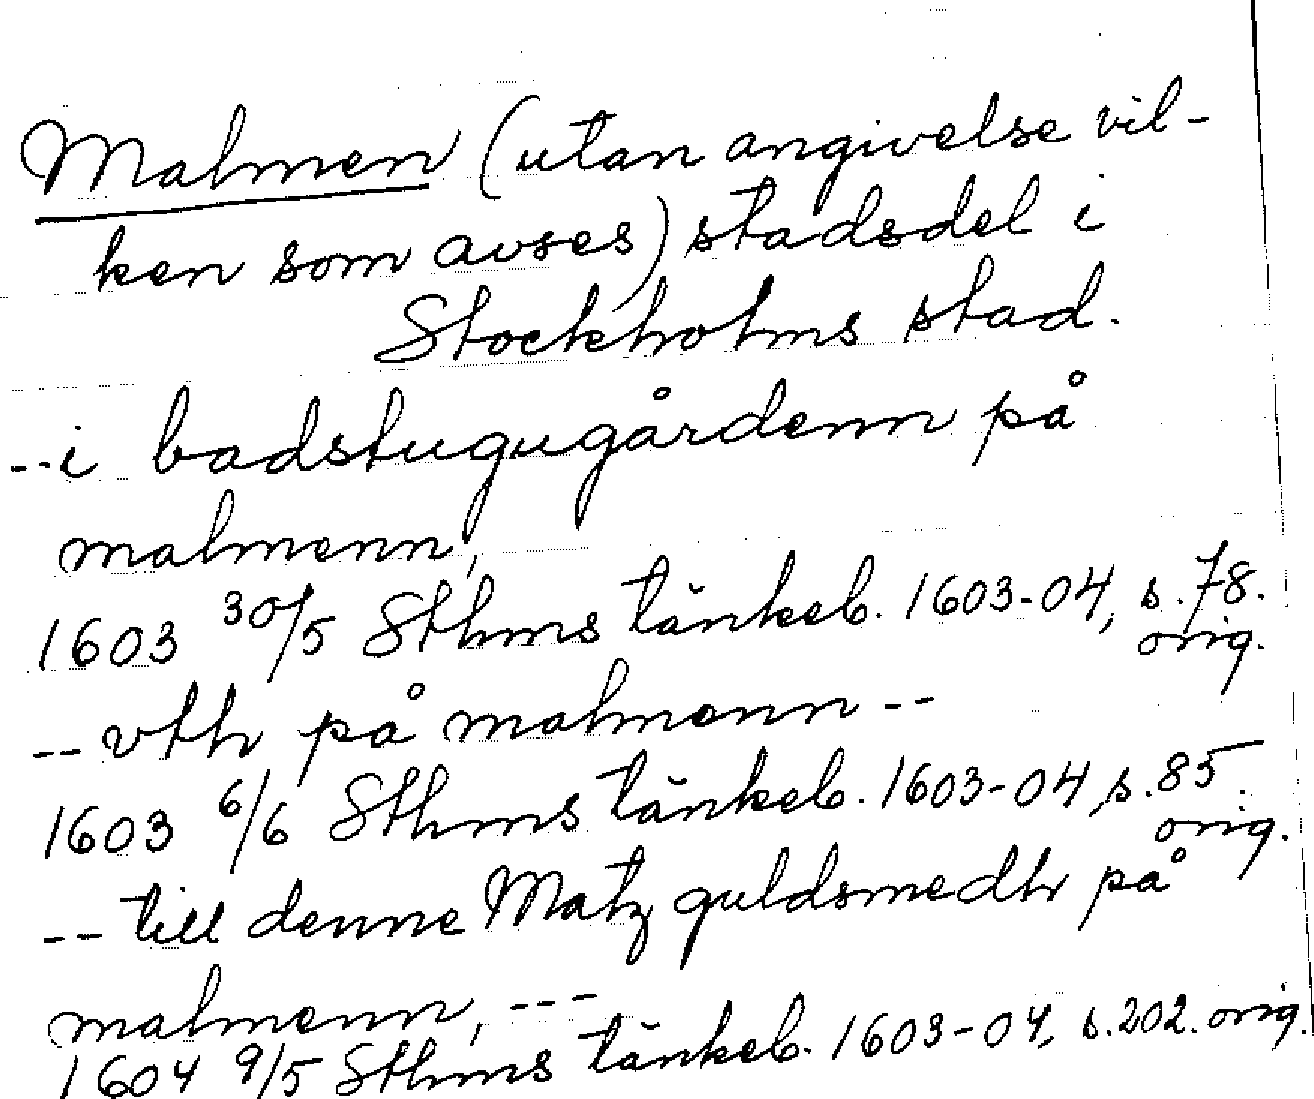 Malmen (utan angivelse vil-
ken som avses) stadsdel i
Stockholms stad.
--i badstugugårdenn på
malmenn,
1603 30/5 Sthms tänkeb. 1603-04, s. 78.
orig.
-- vth på malmenn --
1603 6/6 Sthms tänkeb. 1603-04, s. 85.
orig.
-- till denne Matz guldsmedh på
malmenn, ---
1604 9/5 Sthms tänkeb. 1603-04, s. 202. orig.